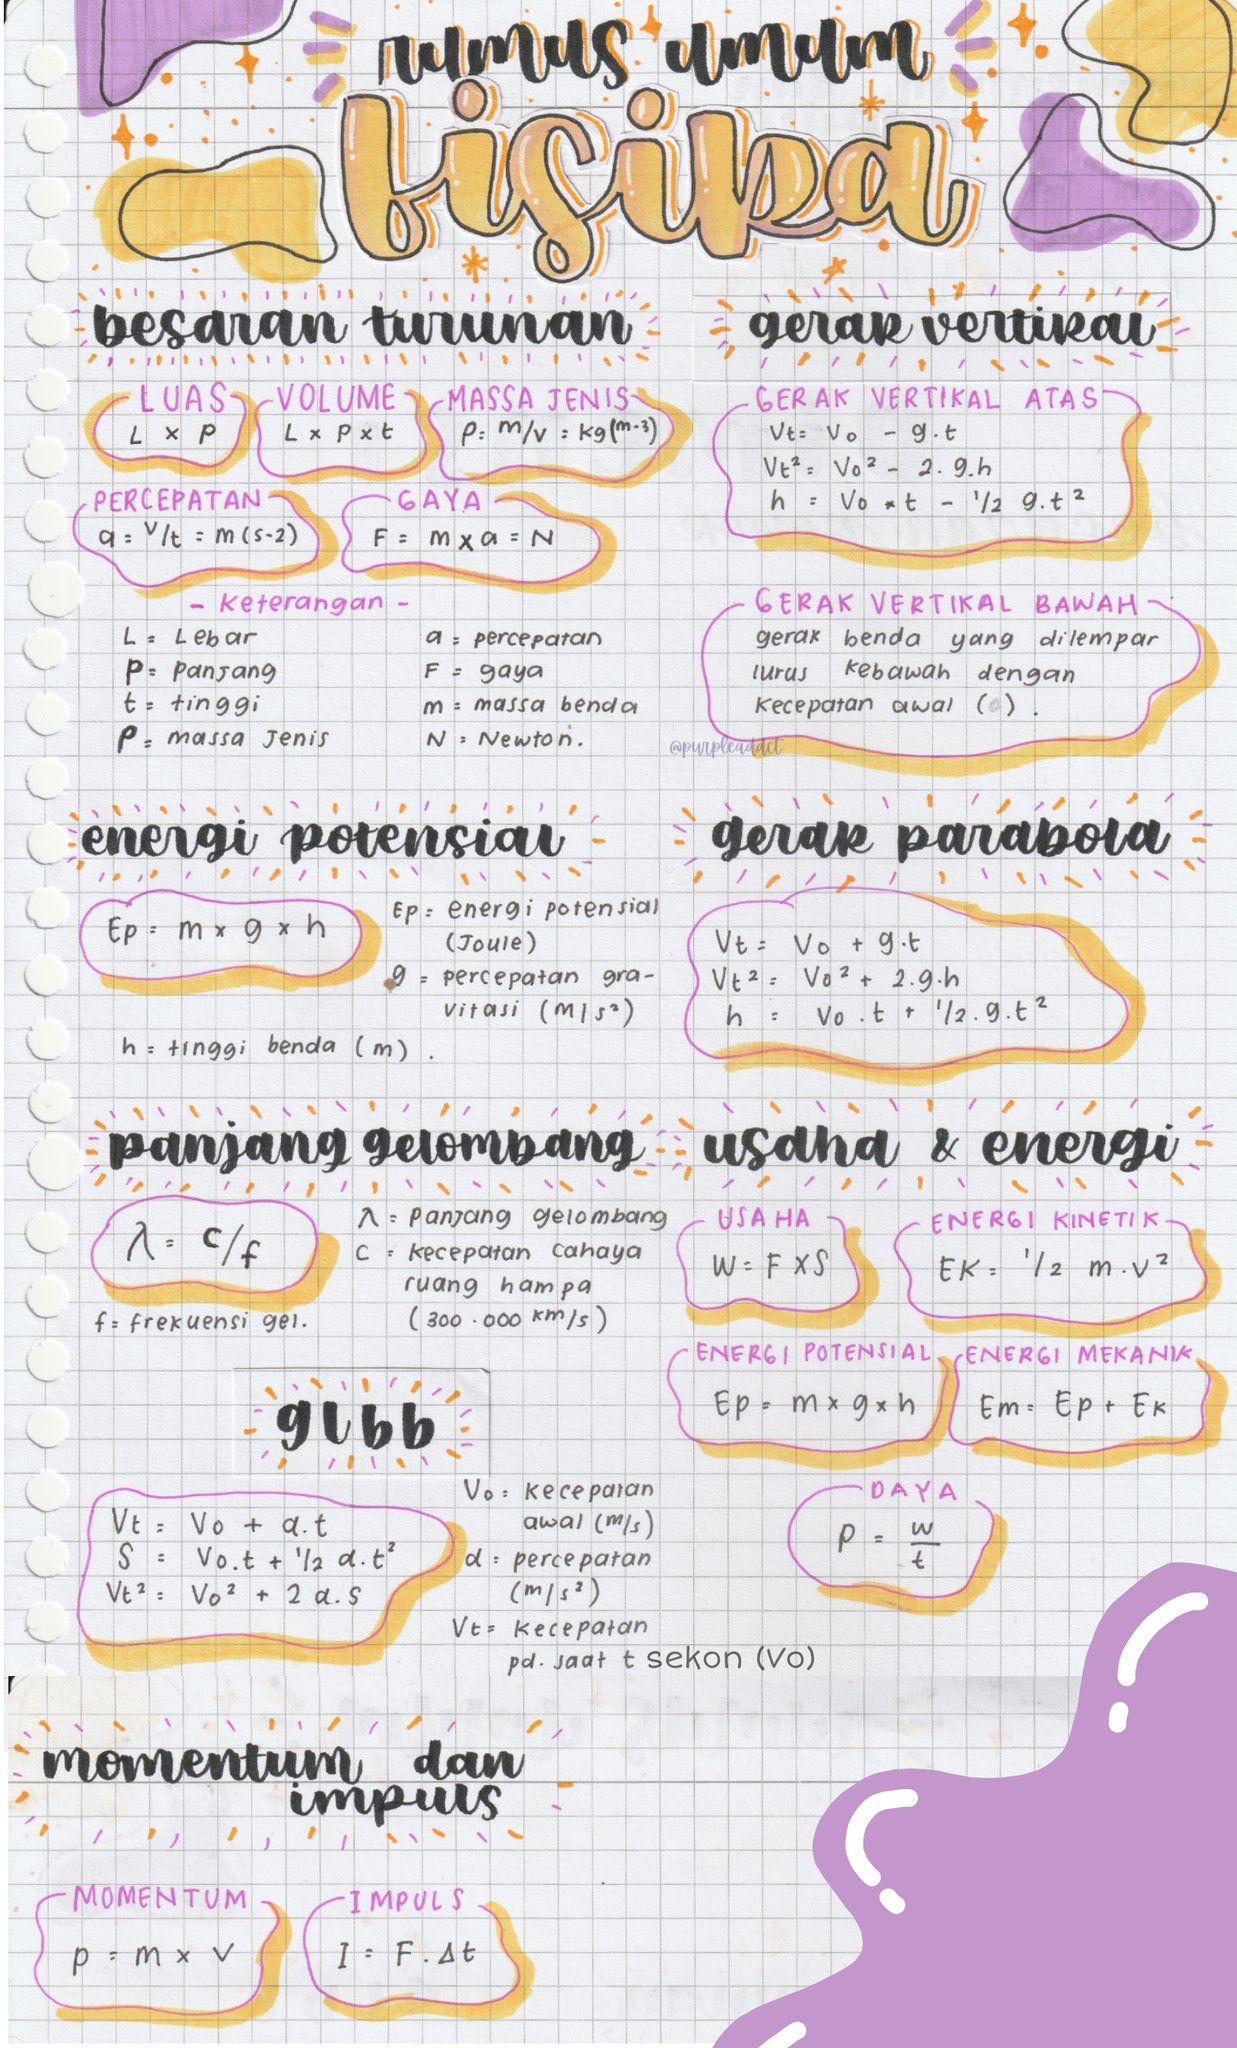 rumus umum
fisika
besaran turunan
LUAS
L x P
VOLUME
L x P x t
MASSA JENIS
ρ = m/v = kg(m-3)
PERCEPATAN
a = v/t = m(s-2)
GAYA
F = m x a = N
- Keterangan -
L = Lebar
P = Panjang
t = tinggi
ρ = massa Jenis
a = percepatan
F = gaya
m = massa benda
N = Newton.
gerak vertikal
GERAK VERTIKAL ATAS
Vt = Vo - g.t
Vt² = Vo² - 2.g.h
h = Vo * t - 1/2 g.t²
GERAK VERTIKAL BAWAH
gerak benda yang dilempar
lurus kebawah dengan
kecepatan awal ( ) .
@purpleaddct
energi potensial
Ep = m x g x h
Ep = energi potensial
(Joule)
g = percepatan gra-
vitasi (m/s²)
h = tinggi benda (m) .
gerak parabola
Vt = Vo + g.t
Vt² = Vo² + 2.g.h
h = Vo.t + 1/2.g.t²
panjang gelombang
λ = c/f
f = frekuensi gel.
λ = Panjang gelombang
C = kecepatan cahaya
ruang hampa
(300.000 km/s)
usaha & energi
USAHA
W = F x S
ENERGI KINETIK
EK = 1/2 m.v²
ENERGI POTENSIAL
Ep = m x g x h
ENERGI MEKANIK
Em = Ep + Ek
DAYA
P = w/t
glbb
Vt = Vo + a.t
S = Vo.t + 1/2 a.t²
Vt² = Vo² + 2 a.s
Vo = kecepatan
awal (m/s)
a = percepatan
(m/s²)
Vt = kecepatan
pd. saat t sekon (Vo)
momentum dan
impuls
MOMENTUM
p = m x v
IMPULS
I = F.Δt